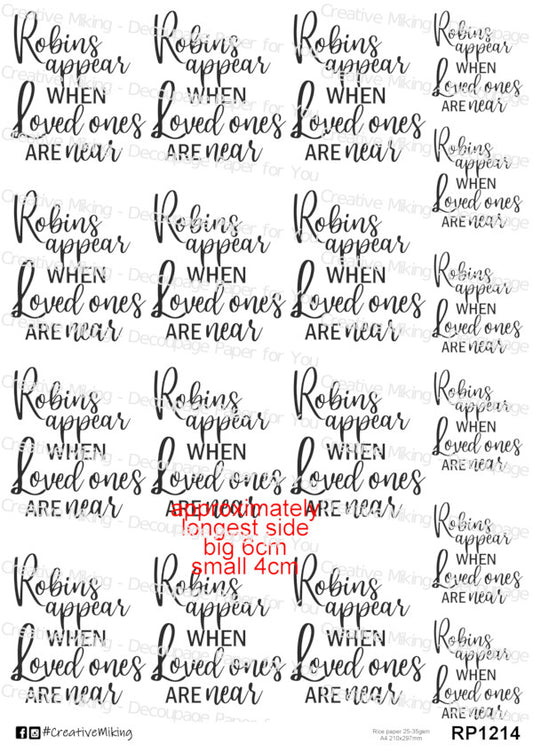 Robins
appear
WHEN
Loved ones
ARE near
Robins
appear
WHEN
Loved ones
ARE near
Robins
appear
WHEN
Loved ones
ARE near
Robins
appear
WHEN
Loved ones
ARE near
Robins
appear
WHEN
Loved ones
ARE near
Robins
appear
WHEN
Loved ones
ARE near
Robins
appear
WHEN
Loved ones
ARE near
Robins
appear
WHEN
Loved ones
ARE near
Robins
appear
WHEN
Loved ones
ARE near
approximately
longest side
big 6cm
small 4cm
Robins
appear
WHEN
Loved ones
ARE near
Robins
appear
WHEN
Loved ones
ARE near
Robins
appear
WHEN
Loved ones
ARE near
Robins
appear
WHEN
Loved ones
ARE near
Robins
appear
WHEN
Loved ones
ARE near
Robins
appear
WHEN
Loved ones
ARE near
Robins
appear
WHEN
Loved ones
ARE near
Robins
appear
WHEN
Loved ones
ARE near
Robins
appear
WHEN
Loved ones
ARE near
Creative Miking - Decoupage Paper for You
#CreativeMiking
Rice paper 25-35gsm
A4 210x297mm
RP1214